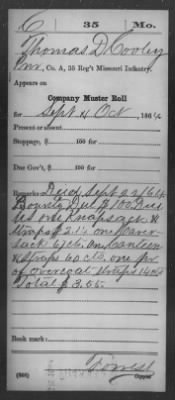 C 35 Mo.
Thomas D. Cooley
Co. A, 35 Reg't Missouri Infantry.
Appears on
Company Muster Roll
for Sept & Oct, 1864
Present or absent
Stoppage, $ 100 for
Due Gov't, $ 100 for
Remarks: Died Sept 22/64
Bounty Due $100 Due
US one Knapsack &
Straps $2.14 one Haver
sack 67 cts. one Canteen
& Straps 60 cts. one pr
of overcoat straps 14 cts
Total $3.55.
Book mark:
(858)
Copyist.